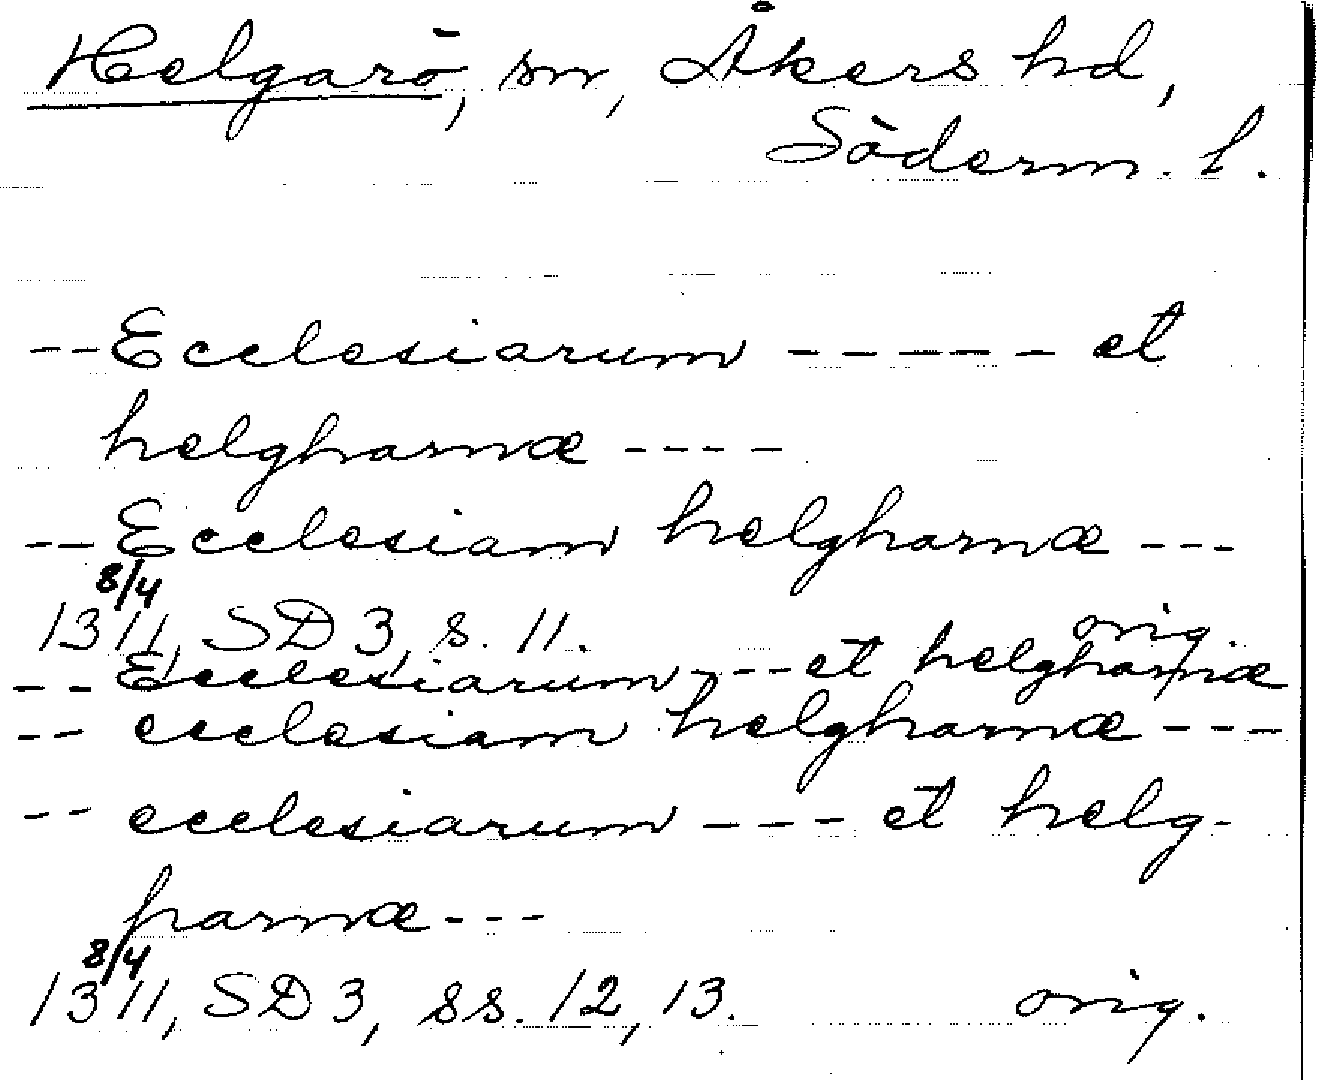 Helgarö, sn, Åkers hd,
Söderm. l.
-- Ecclesiarum ----- et
helgharnæ ----
-- Ecclesiam helgharnæ ---
8/4
1311, SD 3, s. 11. orig.
-- Ecclesiarum --- et helgharnæ
-- ecclesiam helgharnæ ---
-- ecclesiarum --- et helg-
harnæ ---
8/4
1311, SD 3, ss. 12, 13. orig.